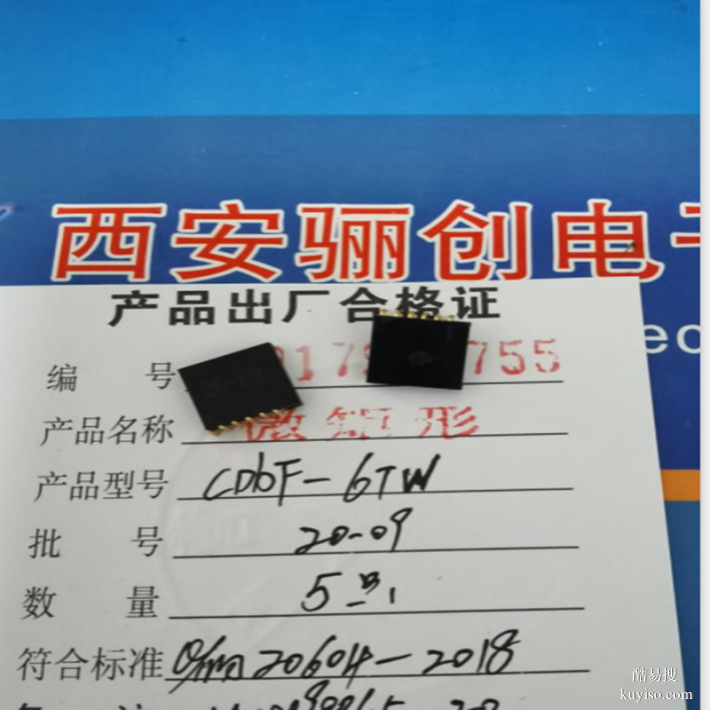 西安骊创电子
产品出厂合格证
编 号 755
产品名称 微矩形
产品型号 CDbF-6TW
批 号 20-09
数 量 5
符合标准 20604-2018
酷易搜
kuyiso.com